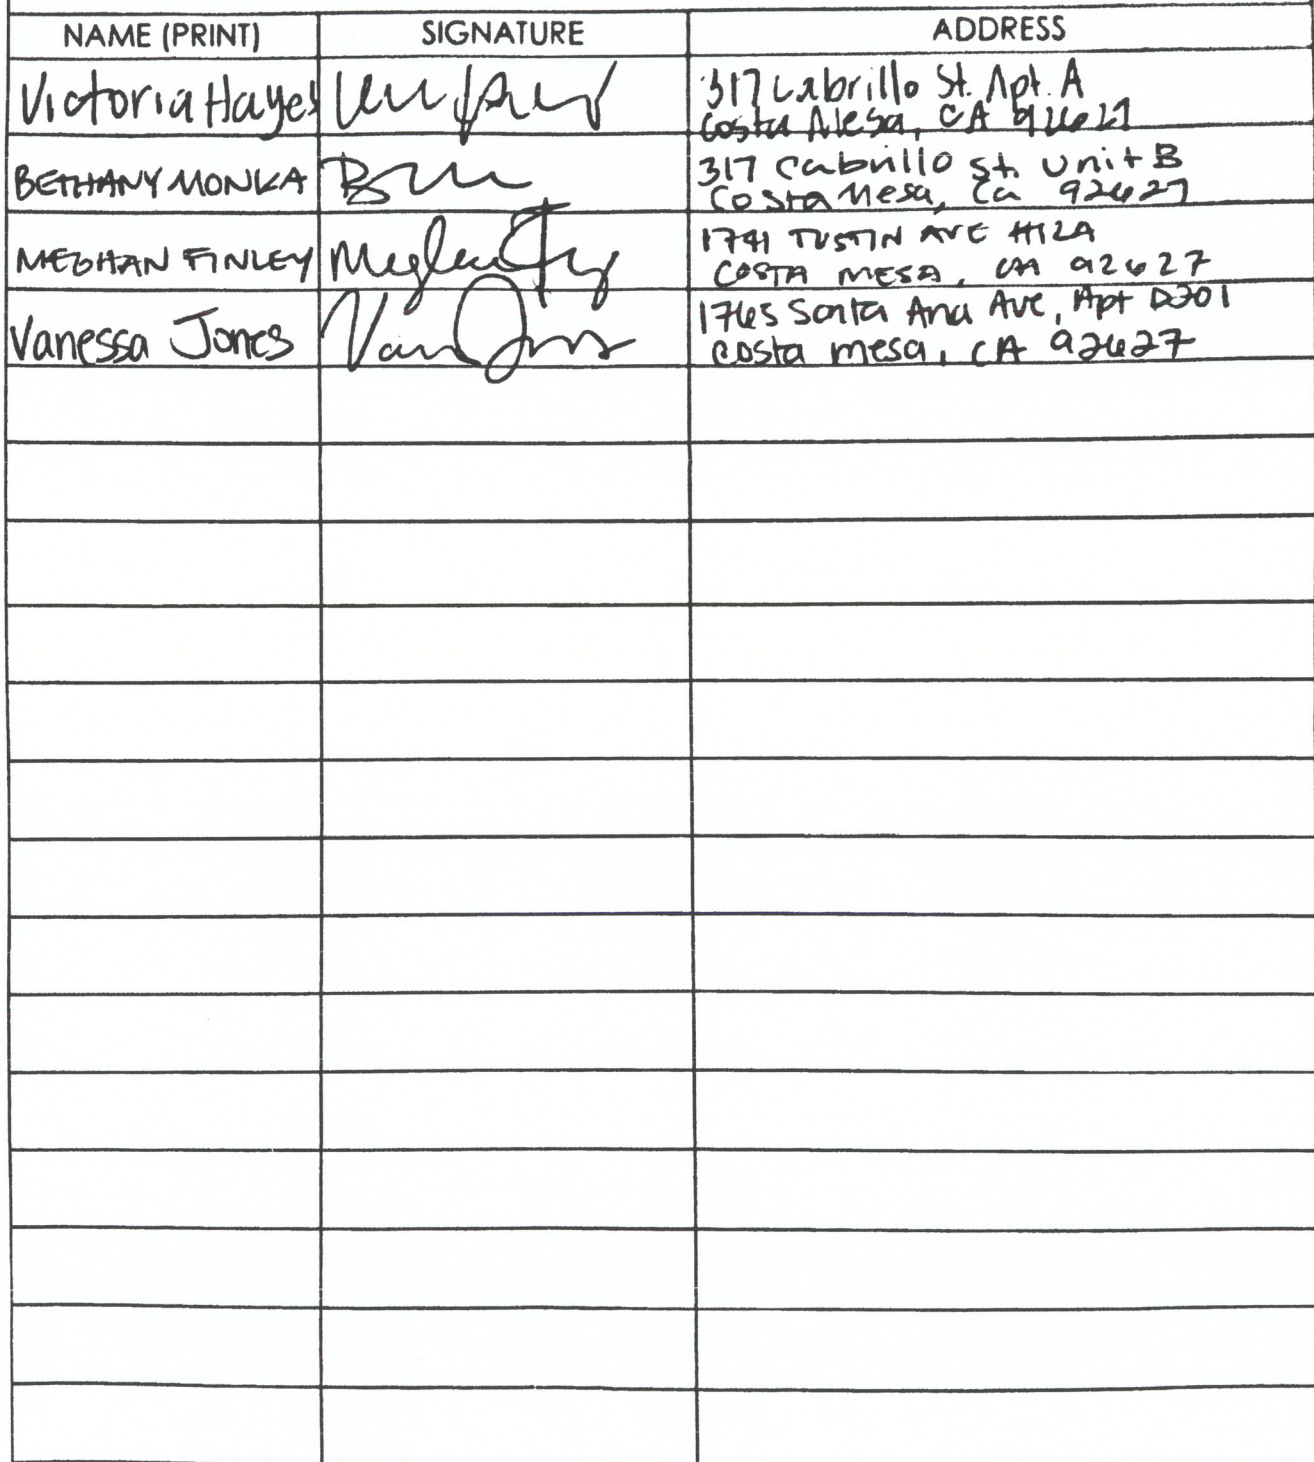 NAME (PRINT) SIGNATURE ADDRESS
Victoria Hayes 317 Cabrillo St. Apt. A
Costa Mesa, CA 92627
BETHANY MONKA 317 Cabrillo St. Unit B
Costa Mesa, Ca 92627
MEGHAN FINLEY 1741 TUSTIN AVE #12A
COSTA MESA, CA 92627
Vanessa Jones 1765 Santa Ana Ave, Apt D201
Costa mesa, CA 92627